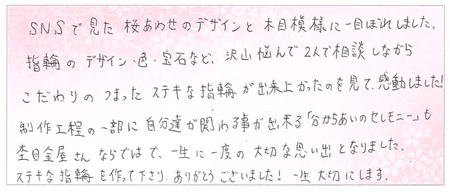 SNSで見た 桜あわせのデザインと 木目模様に一目ぼれしました。
指輪の デザイン・色・宝石など、沢山悩んで 2人で相談しながら
こだわりの つまった ステキな指輪が出来上がったのを見て、感動しました!
制作工程の一部に自分達が関わる事が出来る「分かちあいのセレモニー」も
杢目金屋さん ならではで、一生に一度の 大切な思い出となりました。
ステキな指輪を作って下さり、ありがとうございました! 一生大切にします。